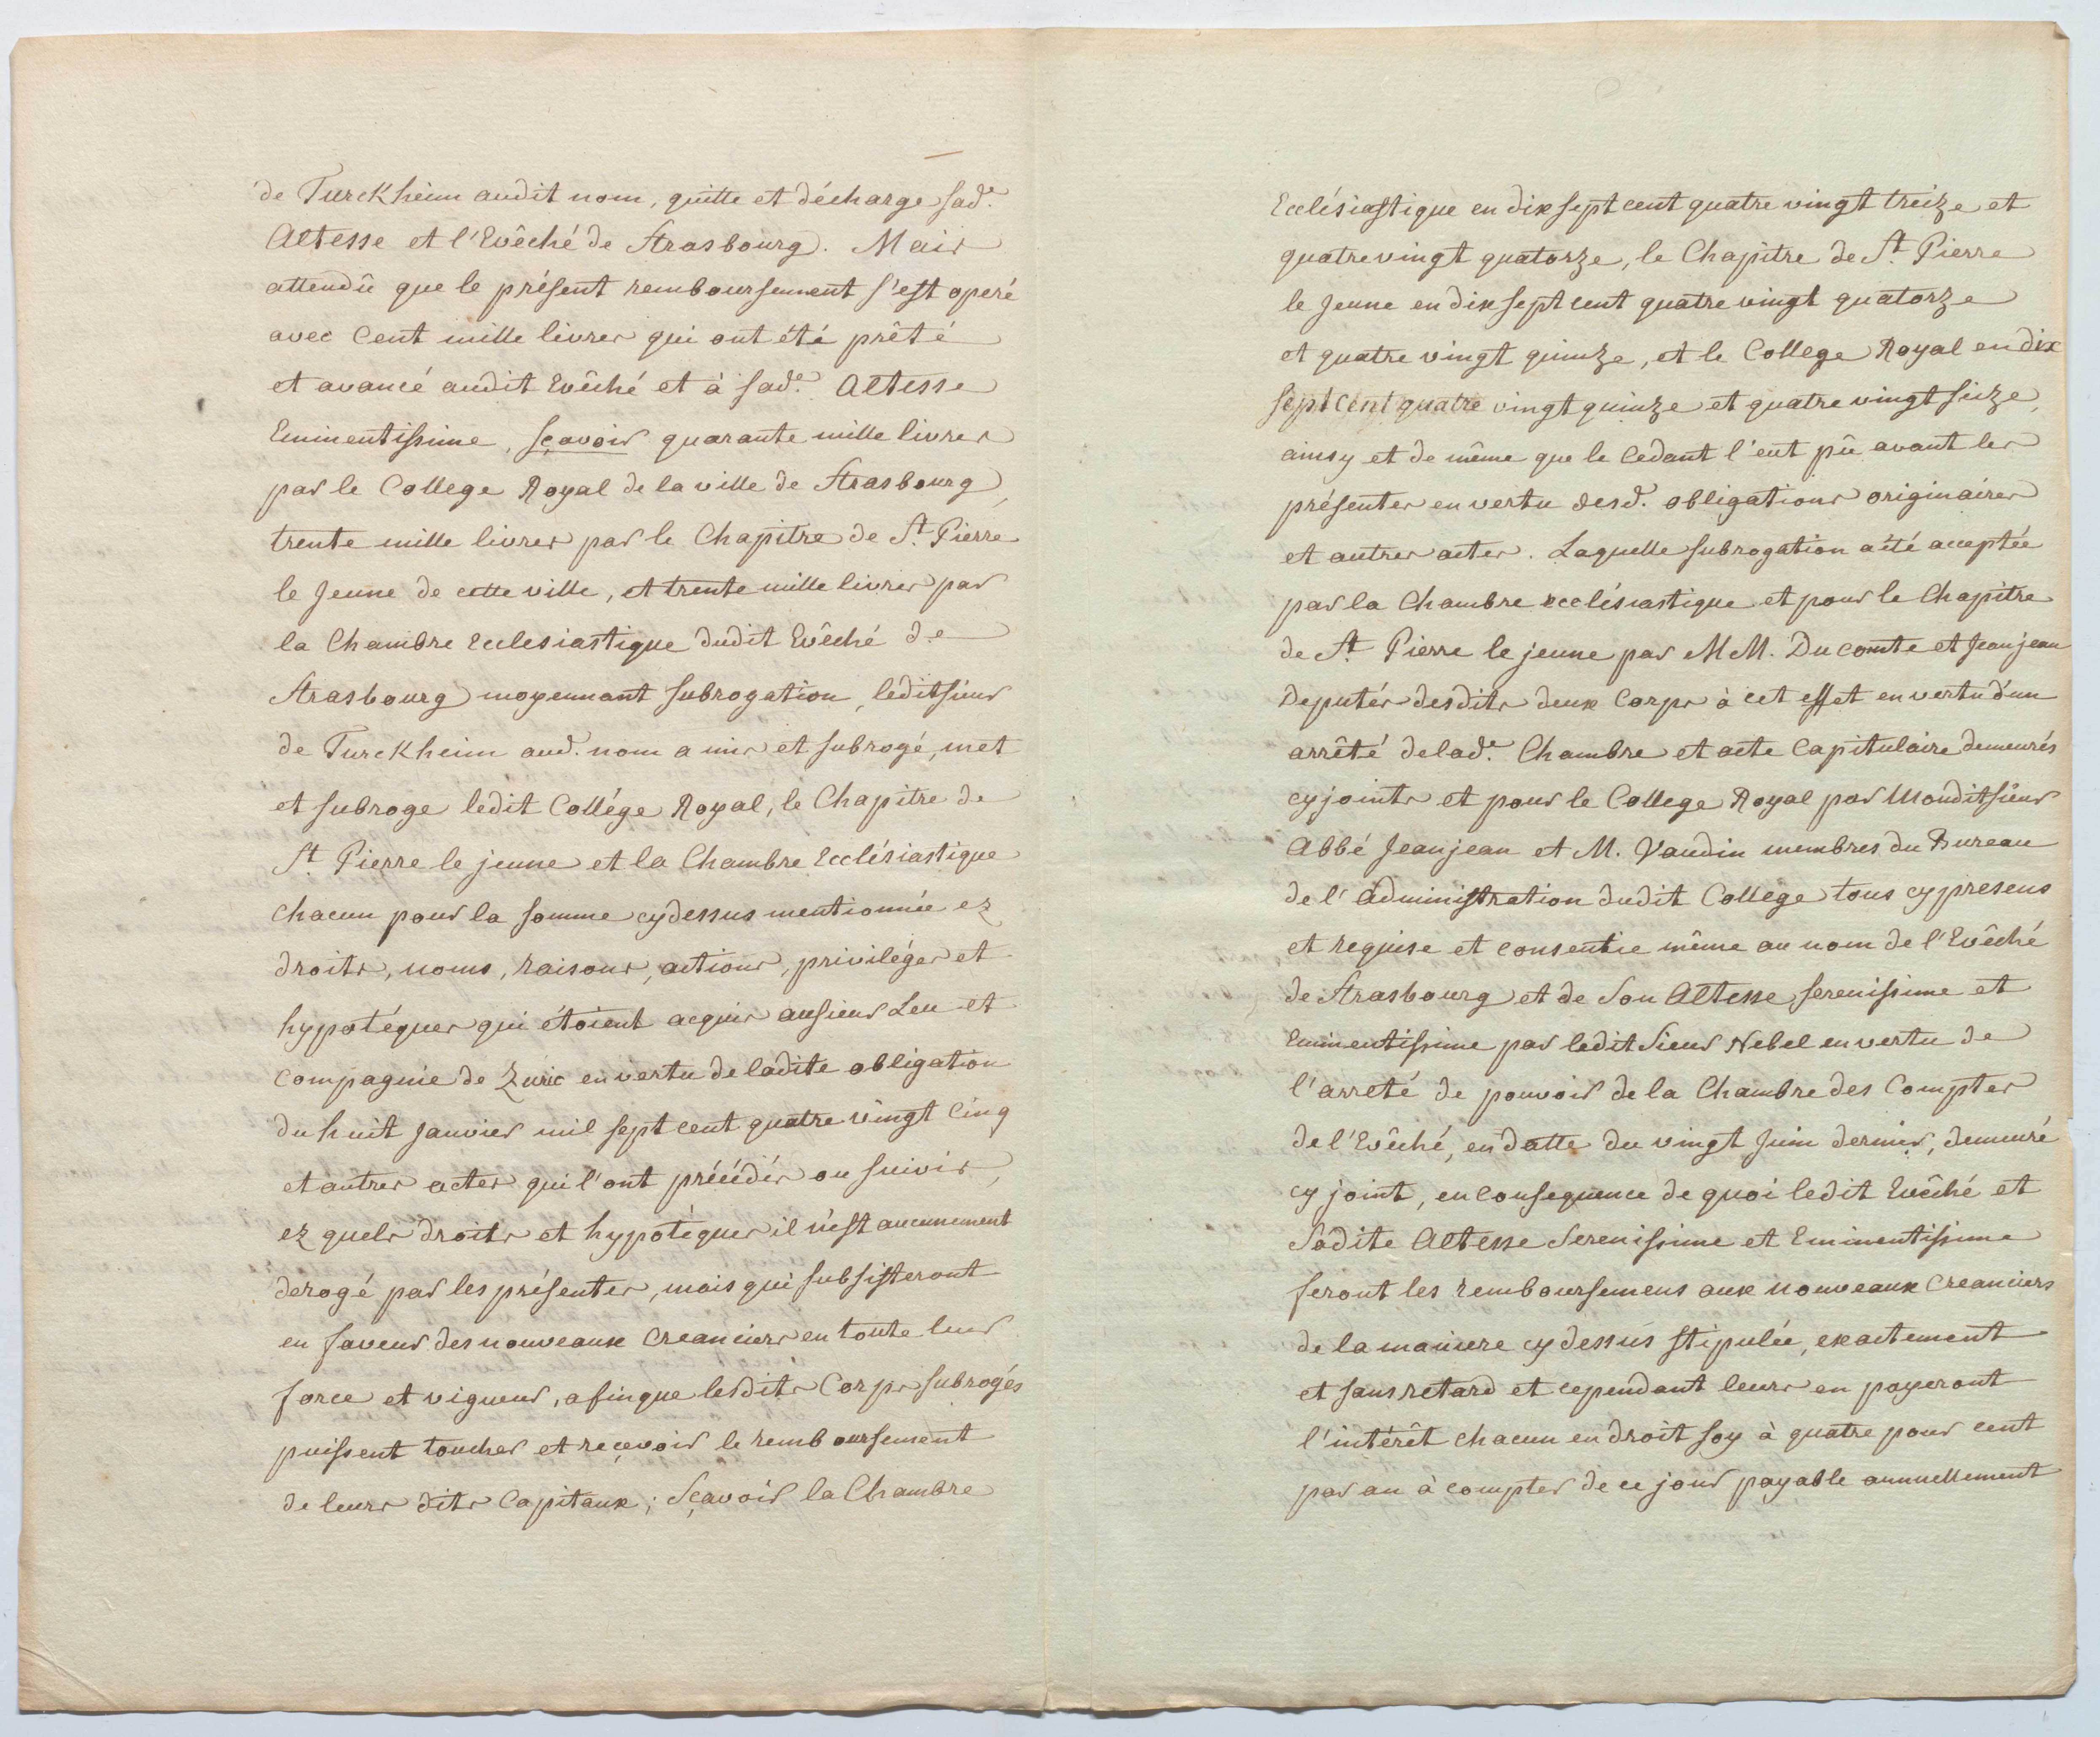 de Turckheim audit nom, quitte et décharge sad.e
Altesse et l'Evêché de Strasbourg. Mais
attendû que le présent remboursement s'est operé
avec Cent mille livres qui ont été prêté
et avancé audit Evêché et à sad.e Altesse
Eminentissime, sçavoir quarante mille livres
par le College Royal de la ville de Strasbourg,
trente mille livres par le Chapitre de St. Pierre
le Jeune de cette ville, et trente mille livres par
la Chambre Ecclesiastique dudit Evêché de
Strasbourg moyennant subrogation, ledit sieur
de Turckheim aud. nom a mis et subrogé, met
et subroge ledit Collége Royal, le Chapitre de
St. Pierre le jeune et la Chambre Ecclésiastique
chacun pour la somme cy dessus mentionnée ez
droits, noms, raisons, actions, priviléges et
hypotéques qui étoient acquis au sieur Leu et
Compagnie de Zuric en vertu de ladite obligation
du huit Janvier mil sept cent quatre vingt Cinq
et autres actes qui l'ont précédés ou suivis,
ez quels droits et hypotéques il n'est aucunement
derogé par les présentes, mais qui subsisteront
en faveur des nouveaux Creanciers en toute leur
force et vigueur, afin que lesdits Corps subrogés
puissent toucher et reçevoir le remboursement
de leurs dits Capitaux; Sçavoir la Chambre
Ecclésiastique en dix sept cent quatre vingt treize et
quatre vingt quatorze, le Chapitre de St. Pierre
le Jeune en dix sept cent quatre vingt quatorze
et quatre vingt quinze, et le College Royal en dix
sept cent quatre vingt quinze et quatre vingt seize,
ainsy et de même que le Cedant l'eut pû avant les
présentes en vertu desd. obligations originaires
et autres actes. Laquelle subrogation a été acceptée
par la Chambre ecclésiastique et pour le Chapitre
de St. Pierre le jeune par M M. Ducomte et Jeanjean
Deputés desdits deux Corps à cet effet en vertu d'un
arrêté de lad.e Chambre et acte Capitulaire demeurés
cy joints et pour le College Royal par Monditsieur
Abbé Jeanjean et M. Vaudin membres du Bureau
de l'administration dudit College tous cy presens
et requise et consentie même au nom de l'Evêché
de Strasbourg et de Son Altesse serenissime et
Eminentissime par ledit Sieur Nebel en vertu de
l'arreté de pouvoir de la Chambre des Comptes
de l'Evêché, en datte du vingt Juin dernier, demeuré
cy joint, en consequence de quoi ledit Evêché et
Sadite Altesse Serenissime et Eminentissime
feront les remboursemens aux nouveaux Creanciers
de la maniere cy dessus stipulée, exactement
et sans retard et cependant leurs en payeront
l'intérêt chacun en droit soy à quatre pour cent
par an à compter de ce jour payable annuellement